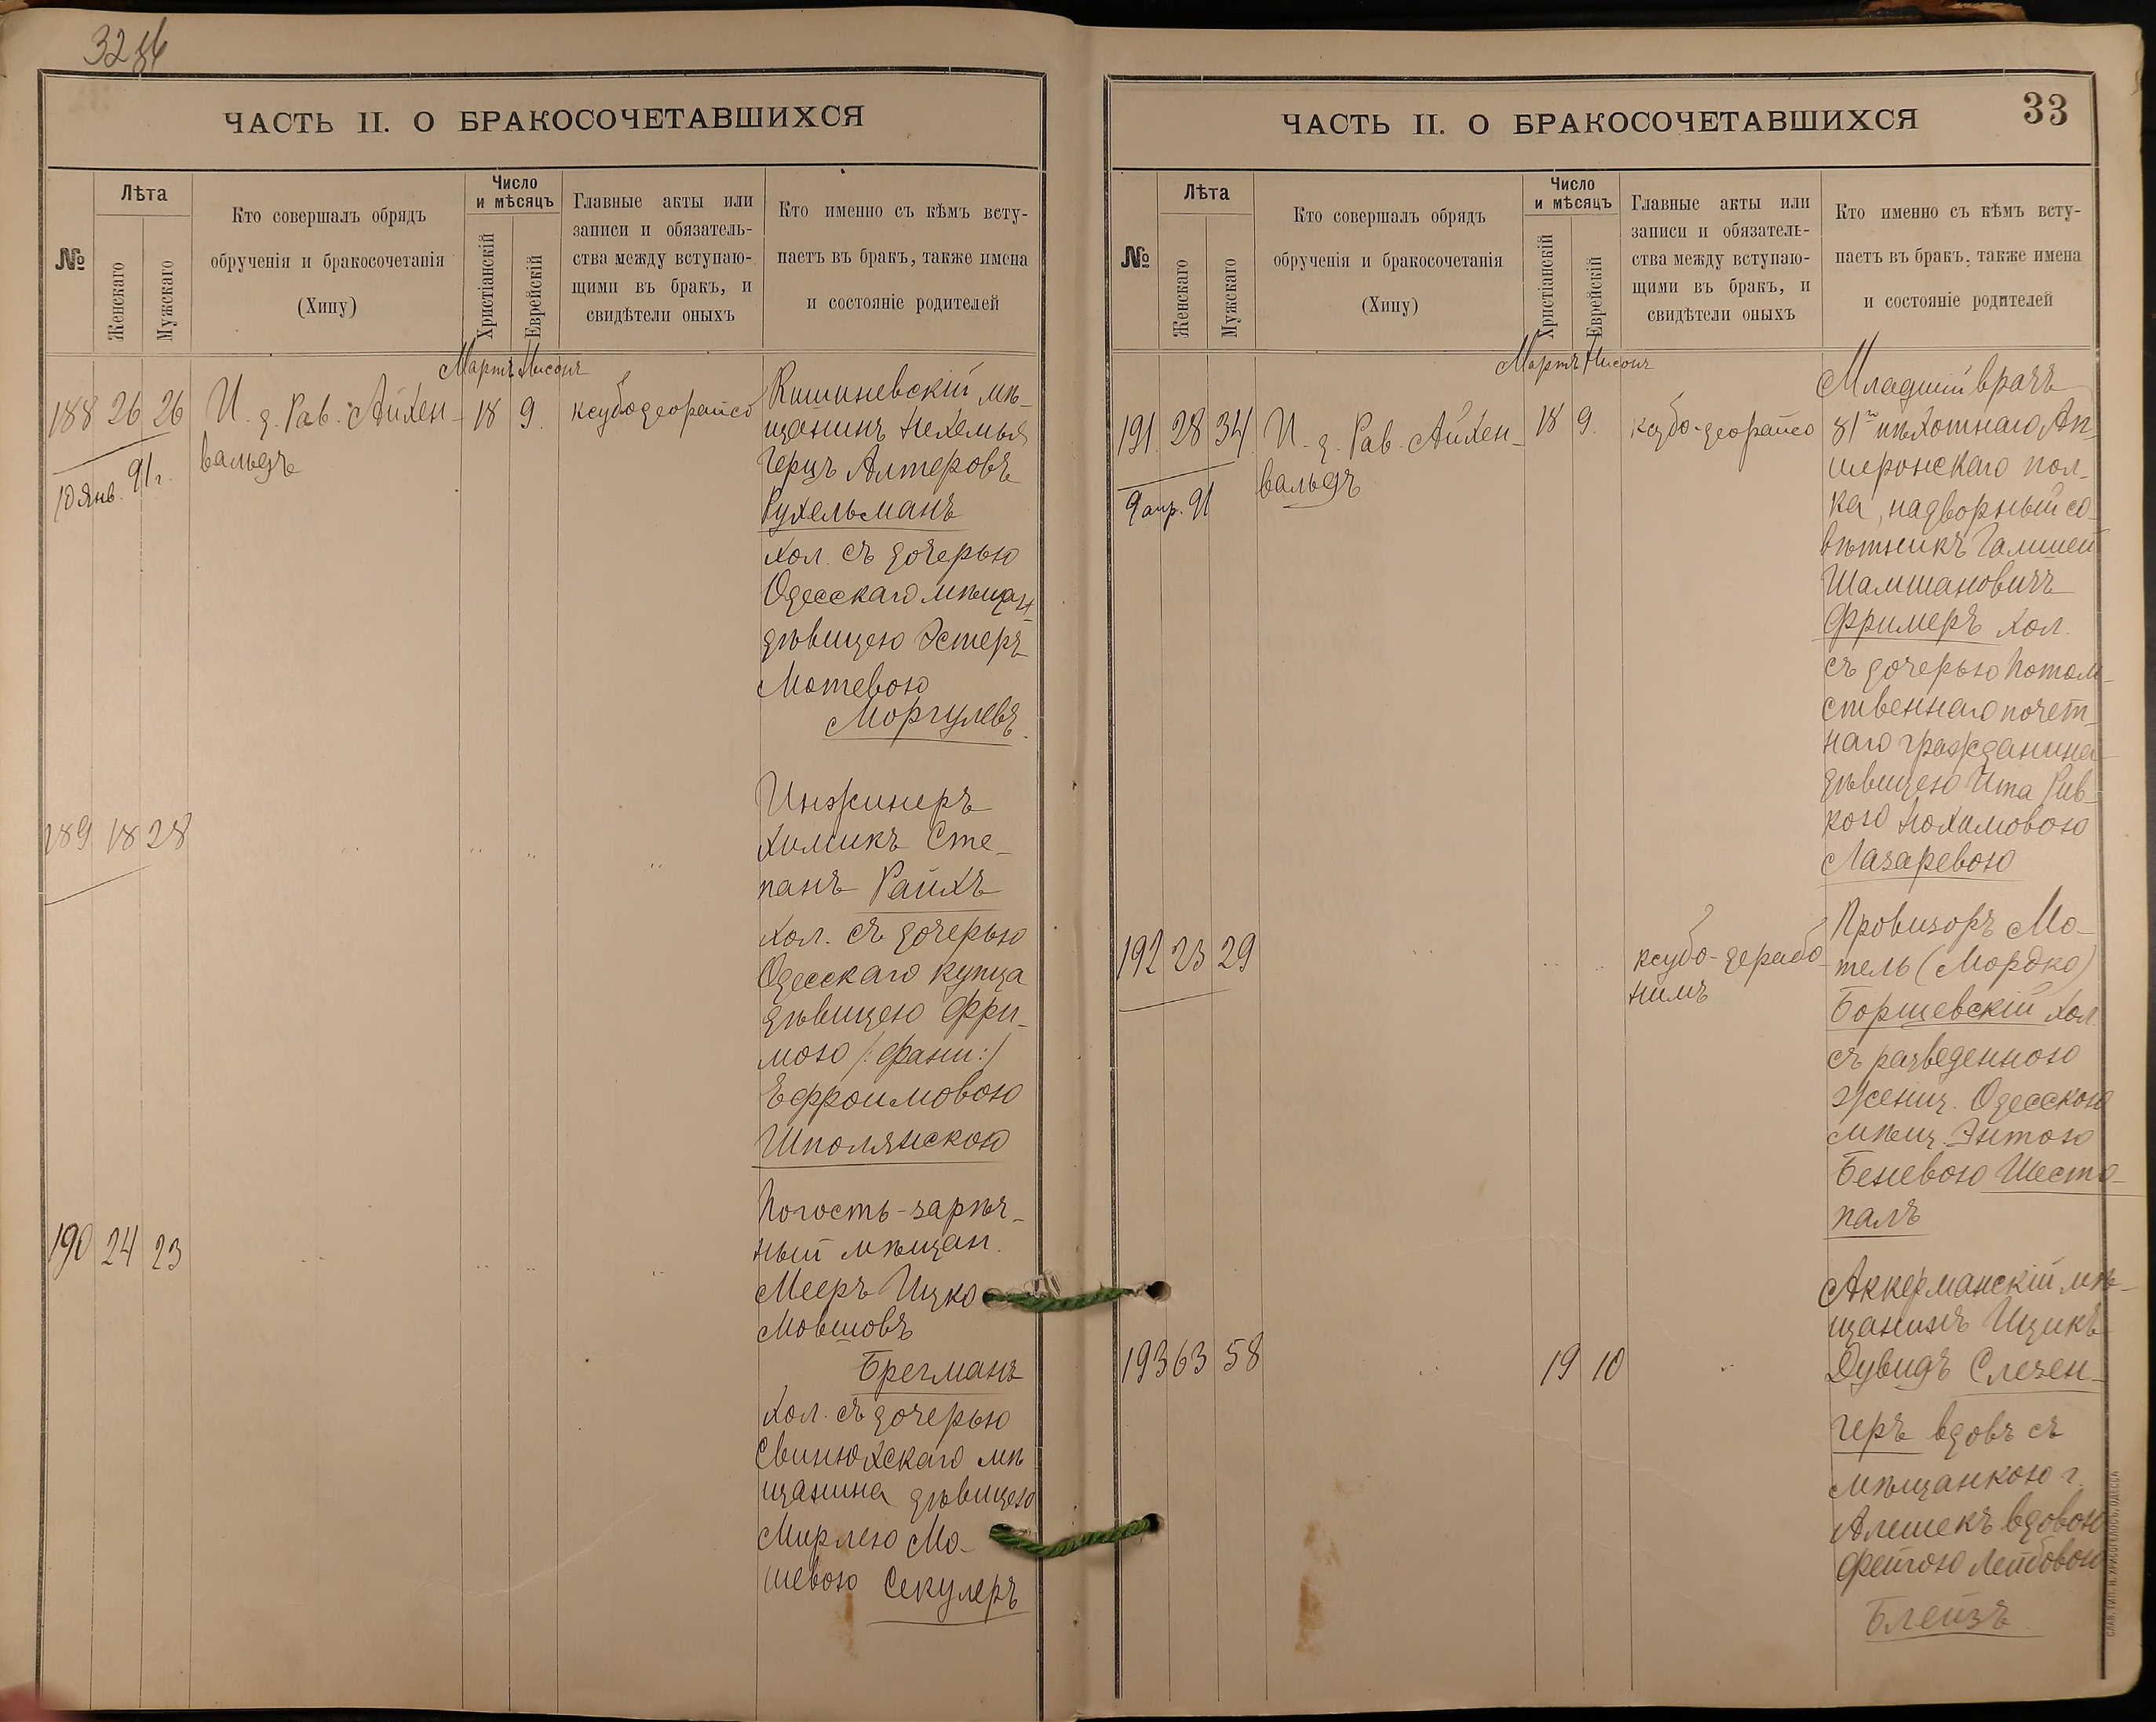 32
ЧАСТЬ II. О БРАКОСОЧЕТАВШИХСЯ
№
Лѣта
Женскаго
Мужскаго
Кто совершалъ обрядъ
обрученія и бракосочетанія
(Хипу)
Число
и мѣсяцъ
Христіанскій
Еврейскій
Главные акты или
записи и обязатель-
ства между вступаю-
щими въ бракъ, и
свидѣтели оныхъ
Кто именно съ кѣмъ всту-
паетъ въ бракъ, также имена
и состояніе родителей
Мартъ Нисонъ
188 26 26 И. д. Рав. Айхен- 18 9. ксубо деорайсо
вальдъ
10 янв. 91 г.
Кишиневскій мѣ-
щанинъ Нехемья
Герцъ Алтеровъ
Рухельманъ
хол. съ дочерью
Одесскаго мѣщан
дѣвицею Эстеръ
Мотевою
Моргулевъ.
189 18 28 " " " "
Инжинеръ
Химикъ Сте-
панъ Райхъ
хол. съ дочерью
Одесскаго купца
дѣвицею Фри-
мою /:Фани:/
Ефроимовою
Шполянскою
190 24 23 " " " "
Погость-зарѣч-
ный мѣщан.
Мееръ Ицко
Мовшовъ
Брегманъ
хол. съ дочерью
Свинюхскаго мѣ
щанина дѣвицею
Мирлею Мо-
шевою Секулеръ
ЧАСТЬ II. О БРАКОСОЧЕТАВШИХСЯ
33
№
Лѣта
Женскаго
Мужскаго
Кто совершалъ обрядъ
обрученія и бракосочетанія
(Хипу)
Число
и мѣсяцъ
Христіанскій
Еврейскій
Главные акты или
записи и обязатель-
ства между вступаю-
щими въ бракъ, и
свидѣтели оныхъ
Кто именно съ кѣмъ всту-
паетъ въ бракъ, также имена
и состояніе родителей
Мартъ Нисонъ
191. 28 34. И. д. Рав. Айхен- 18 9. ксубо-деорайсо
вальдъ
9 апр. 91
Младшій врачъ
81го пѣхотнаго Ап-
шеронскаго пол-
ка, надворный со-
вѣтникъ Галилей
Шамшановичъ
Фримеръ хол.
съ дочерью потом-
ственнаго почет-
наго гражданина
дѣвицею Ита Рив-
кою Нохимовою
Лазаревою
192 23 29 " " " ксубо-дерабо-
нимъ
Провизоръ Мо-
тель (Мордко)
Борщевскій хол.
съ разведенною
женщ. Одесскою
мѣщ. Энтою
Беневою Шесто-
палъ
193 63 58 " 19 10 "
Аккерманскій мѣ-
щанинъ Ицикъ
Дувидъ Слезен-
геръ вдовъ съ
мѣщанкою г.
Алешекъ вдовою
Фейгою Лейбовою
Блейзъ
СЛАВ. ТИП. Н. ХРИСОГЕЛОСЪ, ОДЕССА